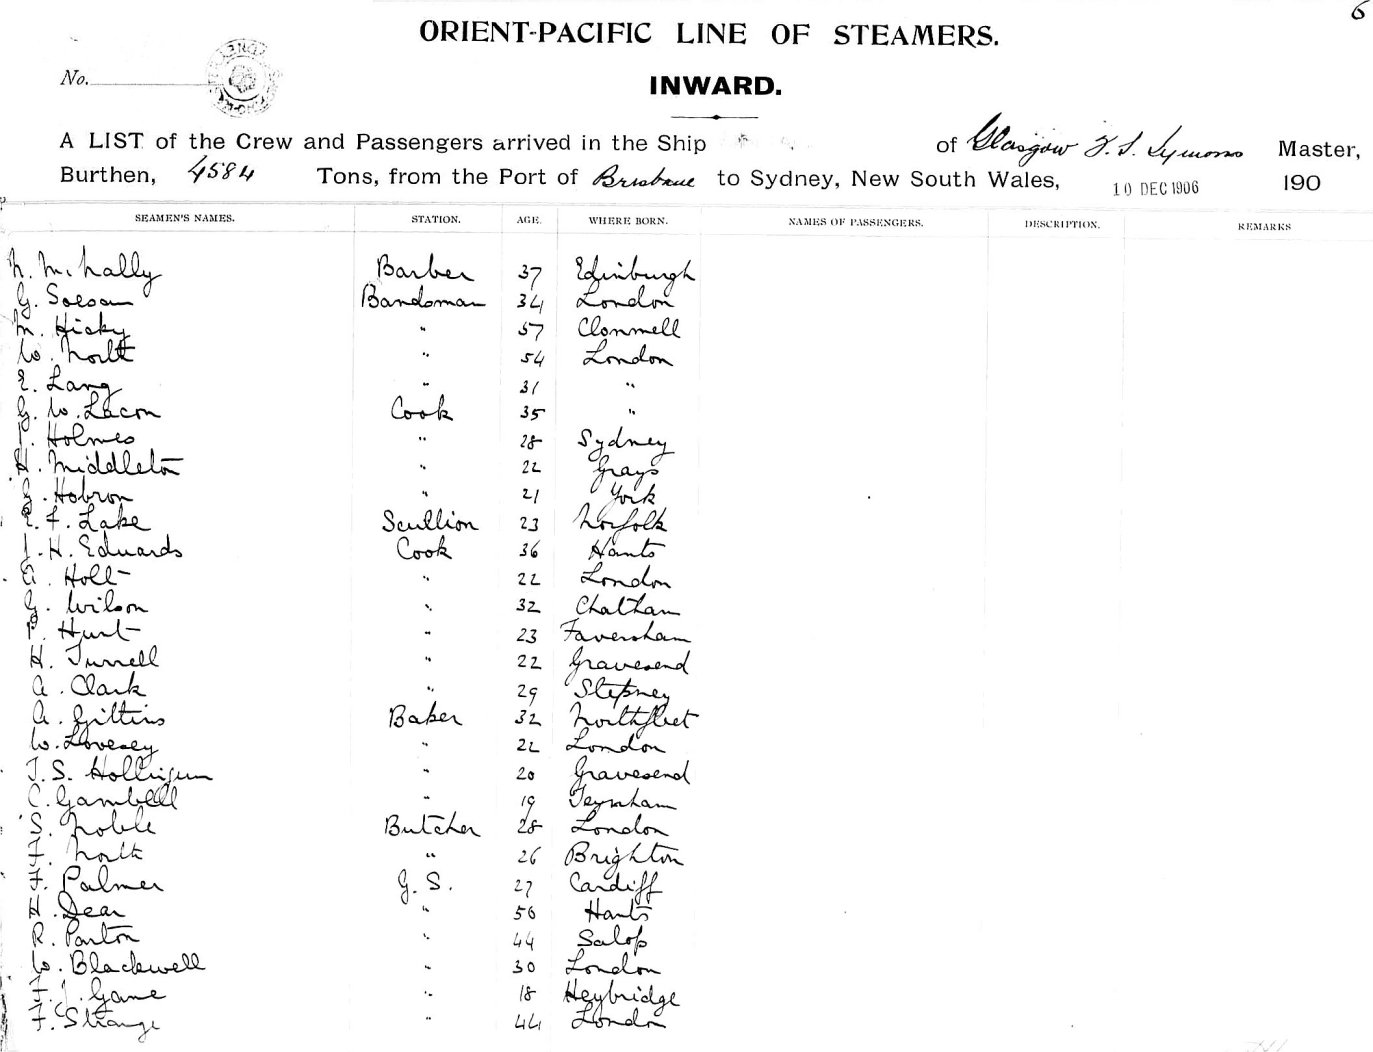 6
ORIENT-PACIFIC LINE OF STEAMERS.
No.
INWARD.
A LIST of the Crew and Passengers arrived in the Ship of Glasgow F. S. Symons Master,
Burthen, 4584 Tons, from the Port of Brisbane to Sydney, New South Wales, 10 DEC 1906 190
SEAMEN'S NAMES. STATION. AGE. WHERE BORN. NAMES OF PASSENGERS. DESCRIPTION. REMARKS
N. McNally Barber 37 Edinburgh
G. Bandsman 34 London
M. Hicky " 57 Clonmell
W. Nortt " 54 London
E. Lang " 31 "
G. W. Lacon Cook 35 "
Holmes " 28 Sydney
H. Middleton " 22 Grays
G. Hobron " 21 York
E. F. Lake Scullion 23 Norfolk
J. H. Edwards Cook 36 Hants
A. Holt " 22 London
G. Wilson " 32 Chatham
P. Hurt " 23 Faversham
H. Turrell " 22 Gravesend
A. Clark " 29 Stepney
A. Gittins Baker 32 Northfleet
W. Lovesey " 22 London
T. S. " 20 Gravesend
C. Gambell " 19 Teynham
S. Noble Butcher 28 London
F. North " 26 Brighton
F. Palmer G. S. 27 Cardiff
H. Dear " 50 Hants
R. Parton " 44 Salop
W. Blackwell " 30 London
F. J. Game " 18 Heybridge
F. Strange " 44 London